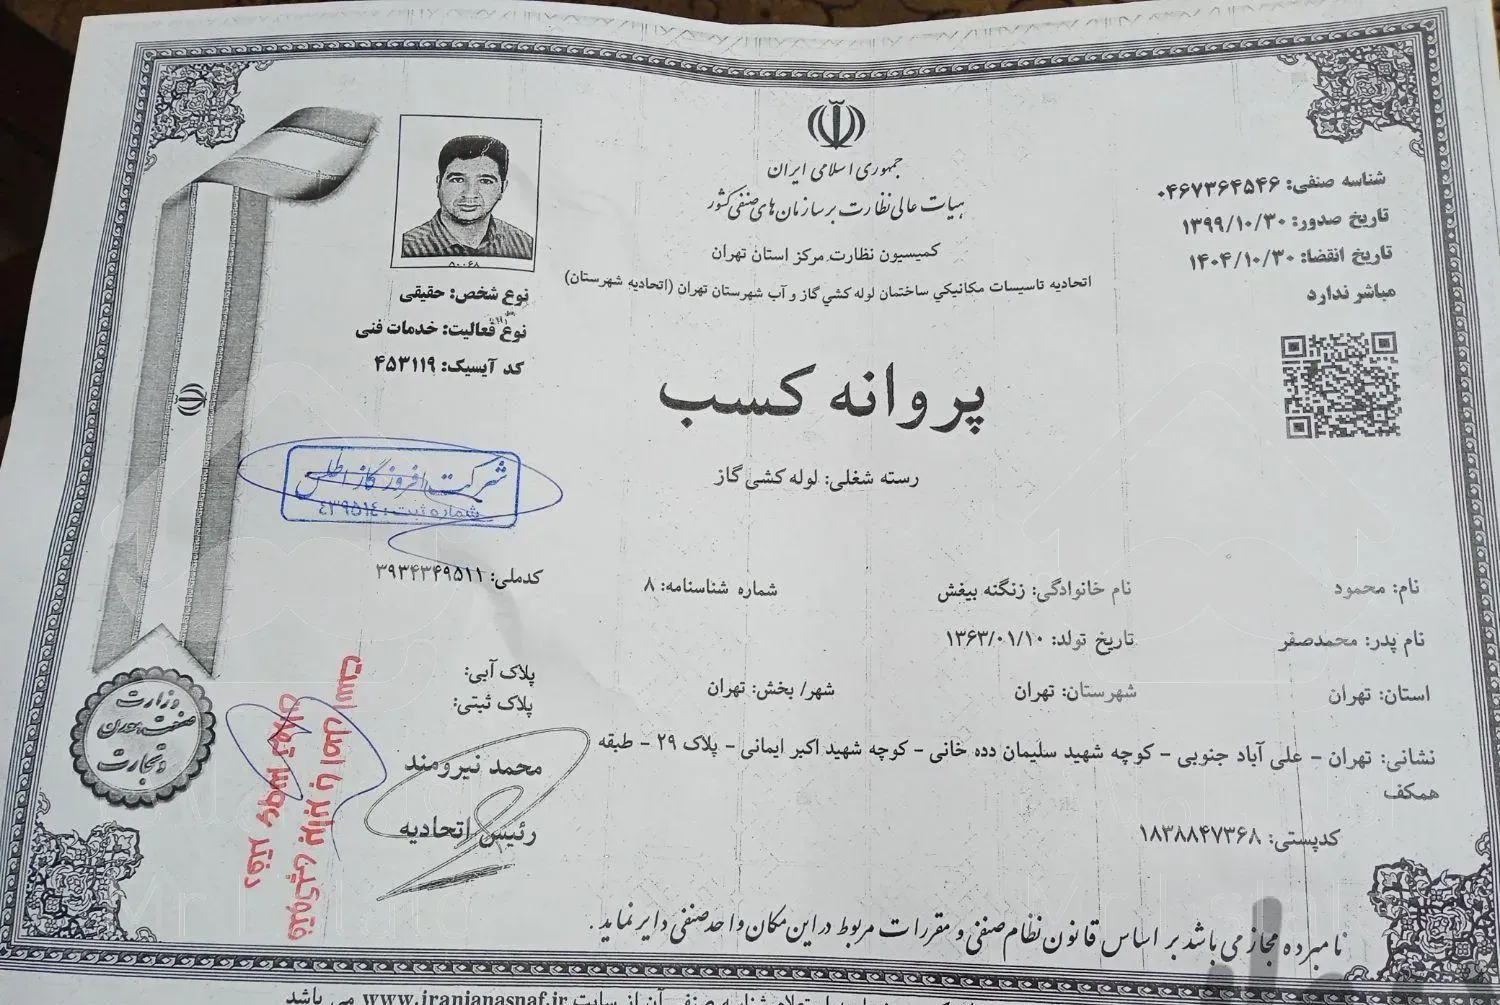 جمهوری اسلامی ایران
هیات عالی نظارت بر سازمان های صنفی کشور
کمیسیون نظارت مرکز استان تهران
اتحادیه تاسیسات مکانیکی ساختمان لوله کشی گاز و آب شهرستان تهران (اتحادیه شهرستان)
شناسه صنفی: ۰۴۶۷۳۶۴۵۴۶
تاریخ صدور: ۱۳۹۹/۱۰/۳۰
تاریخ انقضا: ۱۴۰۴/۱۰/۳۰
مباشر ندارد
۵۰۰۶۸
نوع شخص: حقیقی
نوع فعالیت: خدمات فنی
کد آیسیک: ۴۵۳۱۱۹
پروانه کسب
رسته شغلی: لوله کشی گاز
شرکت افروز گاز اطلس
شماره ثبت: ٤٣٩٥١٤
نام: محمود نام خانوادگی: زنگنه بیغش شماره شناسنامه: ۸ کدملی: ۳۹۳۴۳۴۹۵۱۱
نام پدر: محمدصفر تاریخ تولد: ۱۳۶۳/۰۱/۱۰
استان: تهران شهرستان: تهران شهر/ بخش: تهران
پلاک آبی:
پلاک ثبتی:
نشانی: تهران - علی آباد جنوبی - کوچه شهید سلیمان دده خانی - کوچه شهید اکبر ایمانی - پلاک ۲۹ - طبقه
همکف
کدپستی: ۱۸۳۸۸۴۷۳۶۸
محمد نیرومند
رئیس اتحادیه
وزارت
صنعت، معدن
و تجارت
فتوکپی برابر با اصل است
دفتر تهران
نامبرده مجاز می باشد بر اساس قانون نظام صنفی و مقررات مربوط در این مکان واحد صنفی دایر نماید.
شناسه صنفی آن از سایت www.iranianasnaf.ir می باشد